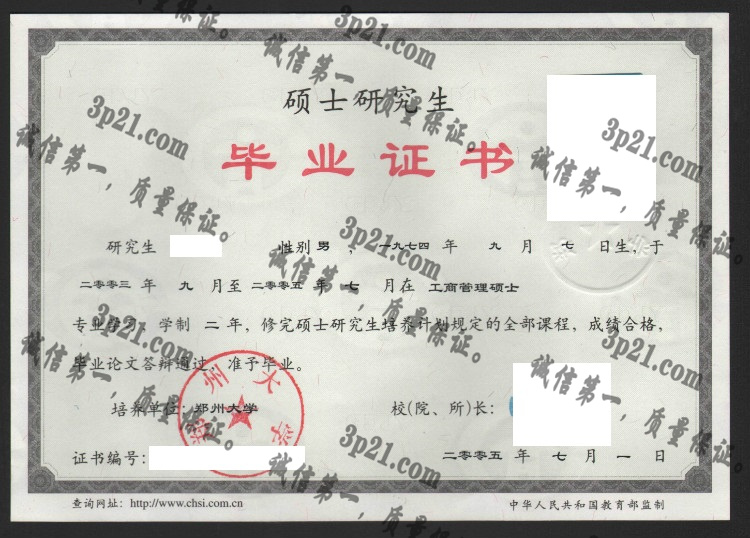 硕士研究生
毕业证书
研究生 性别 男 ，一九七四 年 九 月 七 日生，于
二〇〇三 年 九 月至 二〇〇五 年 七 月在 工商管理硕士
专业学习，学制 二 年，修完硕士研究生培养计划规定的全部课程，成绩合格，
毕业论文答辩通过，准予毕业。
培养单位：郑州大学 校(院、所)长：
证书编号：
二〇〇五 年 七 月 一 日
查询网址：http://www.chsi.com.cn 中华人民共和国教育部监制
郑州大学
3p21.com
诚信第一，质量保证。
3p21.com
诚信第一，质量保证。
3p21.com
诚信第一，质量保证。
3p21.com
诚信第一，质量保证。
3p21.com
诚信第一，质量保证。
3p21.com
诚信第一，质量保证。
3p21.com
诚信第一，质量保证。